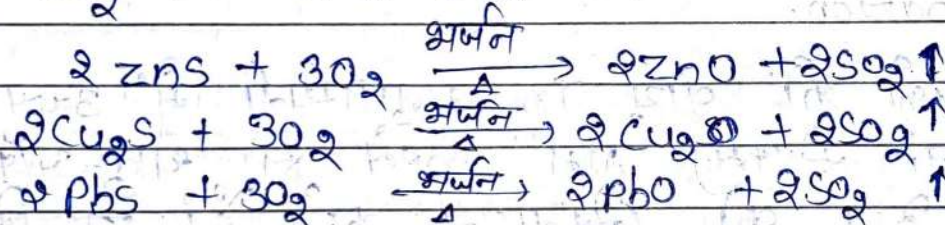 2
2 ZnS + 3O2 भर्जन → Δ 2ZnO + 2SO2 ↑
2Cu2S + 3O2 भर्जन → Δ 2Cu2O + 2SO2 ↑
2PbS + 3O2 भर्जन → Δ 2PbO + 2SO2 ↑